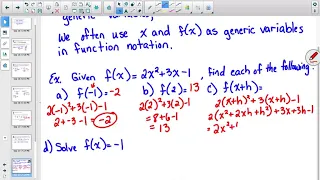 generic variable,
We often use x and f(x) as generic variables
in function notation.
Ex. Given f(x) = 2x²+3x-1 , Find each of the following.
a) f(-1) = -2
2(-1)²+3(-1)-1
2+-3-1 = -2
b) f(2) = 13
2(2)²+3(2)-1
= 8+6-1
= 13
c) f(x+h) =
2(x+h)²+3(x+h)-1
2(x²+2xh+h²)+3x+3h-1
= 2x²+
d) Solve f(x)=-1